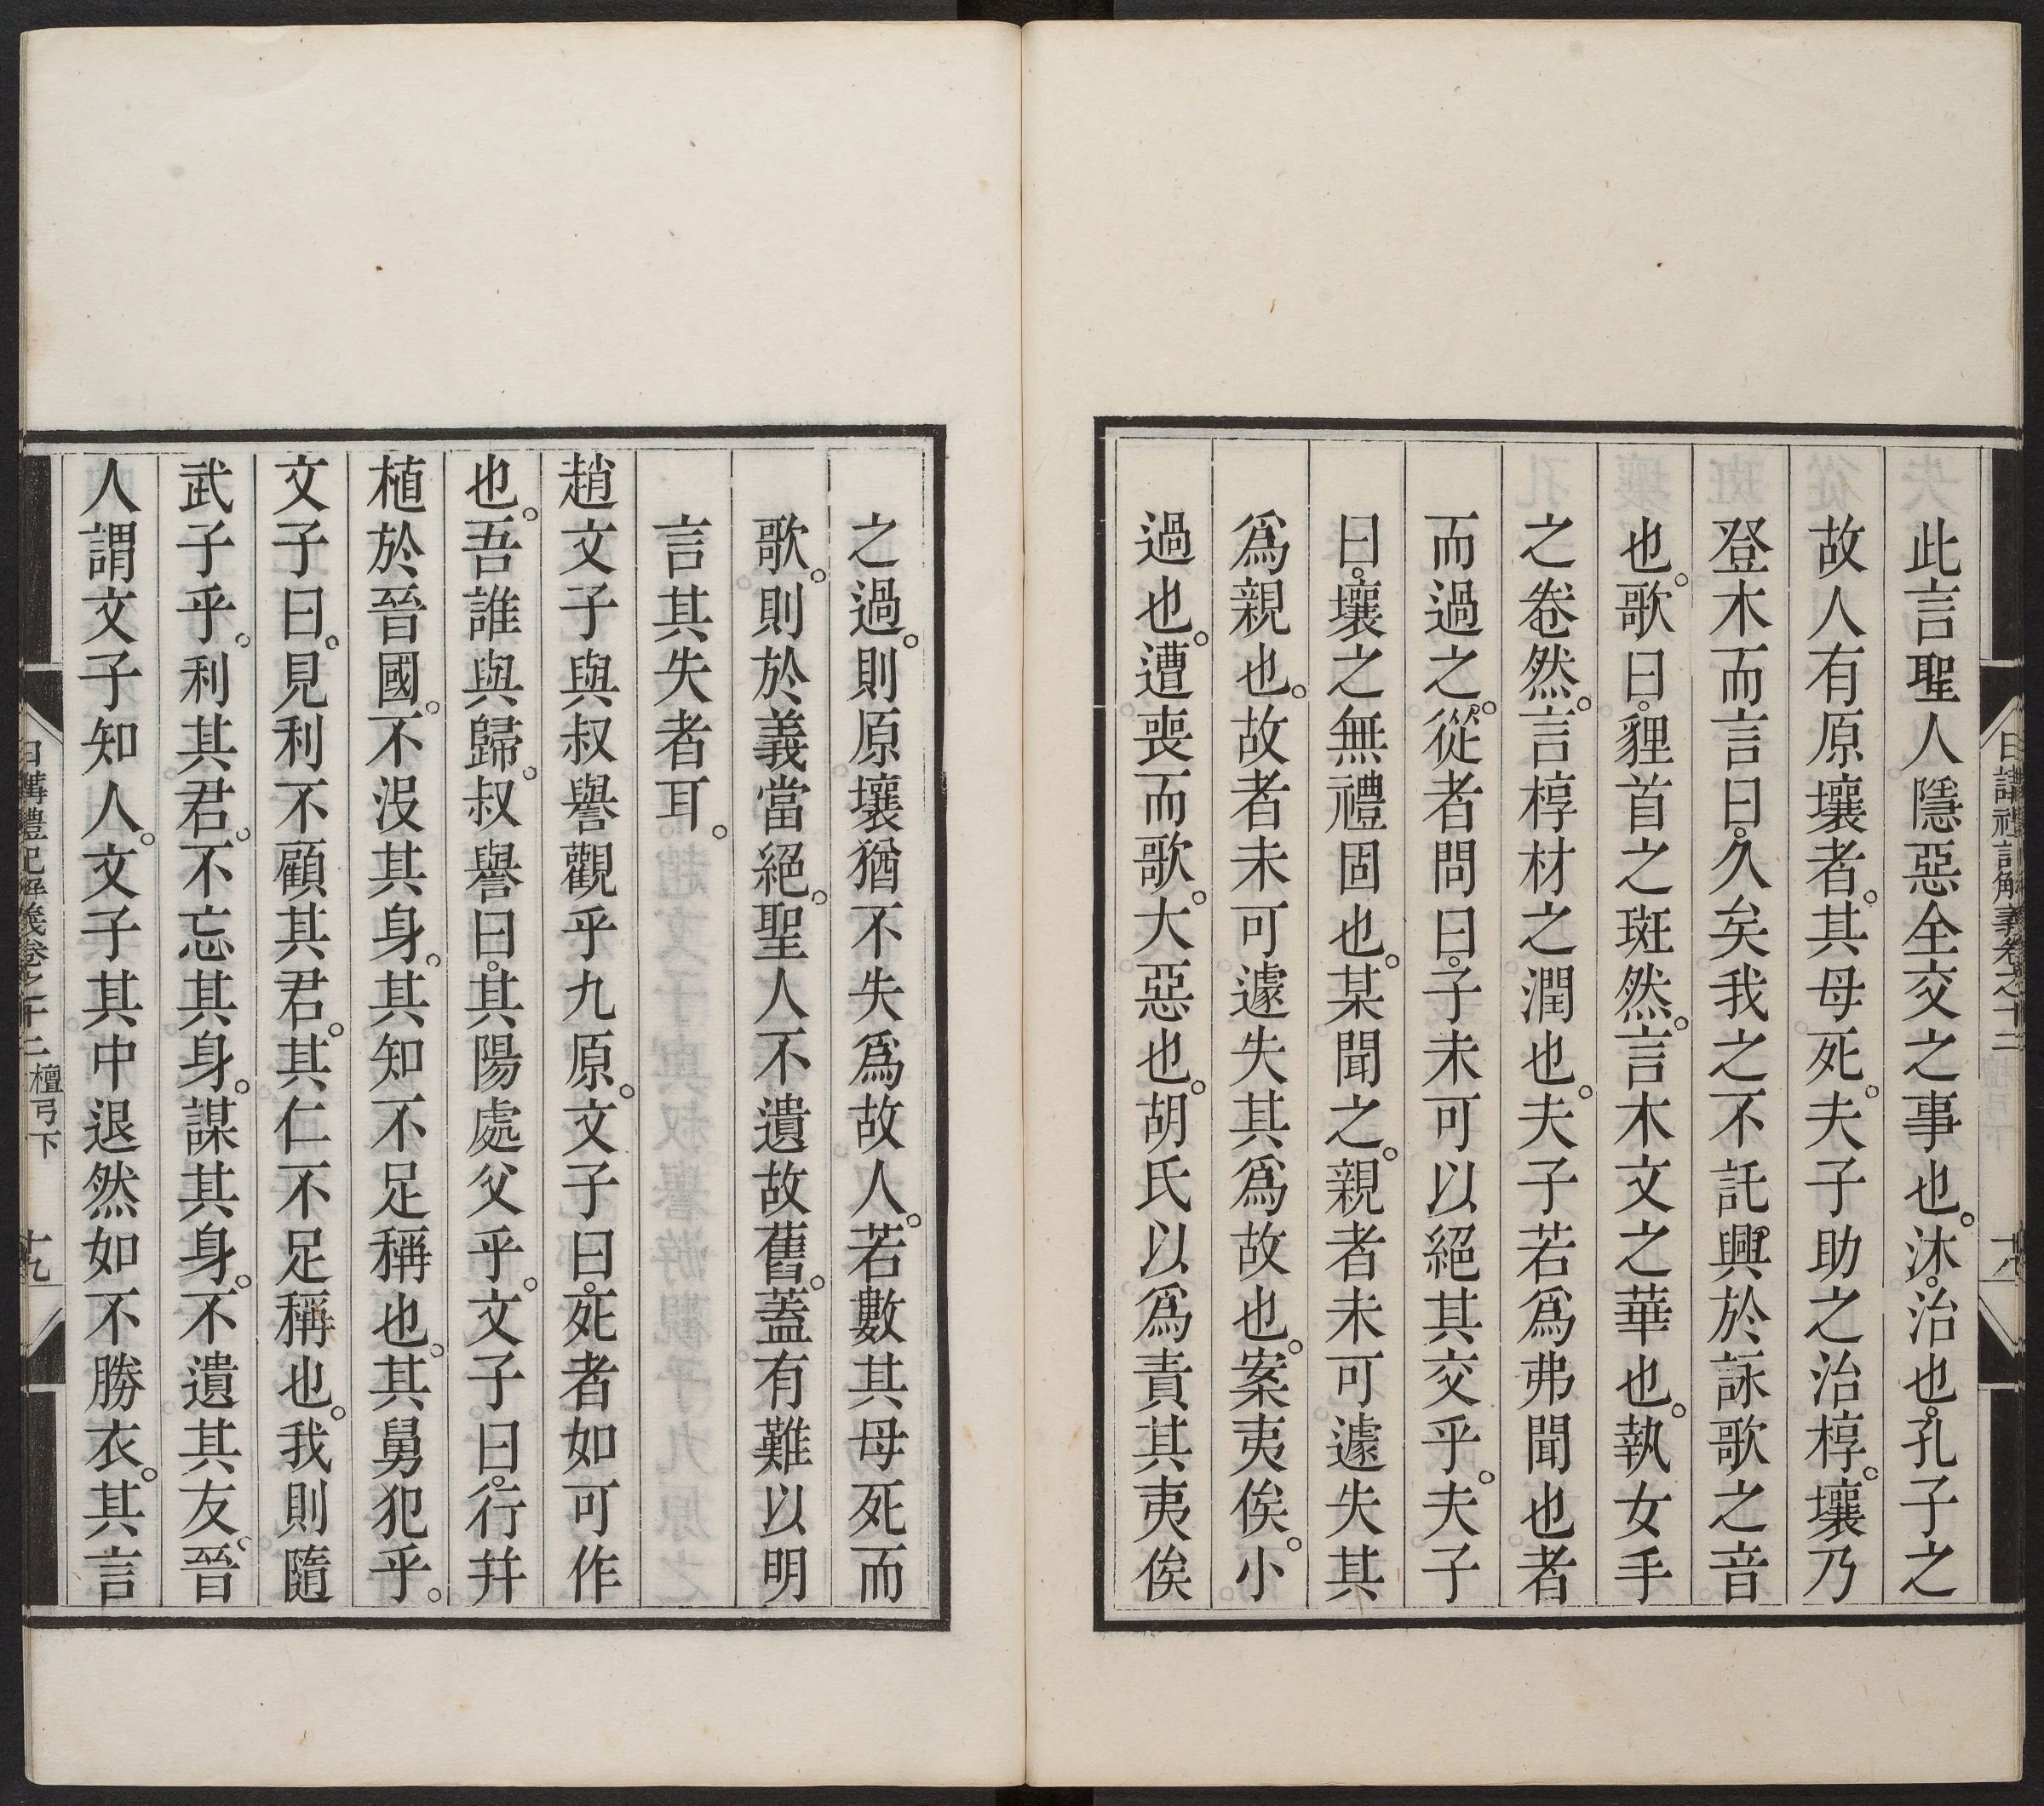 日講禮記解義卷之十二
此言聖人隱惡全交之事也。沐。治也。孔子之
故人有原壤者。其母死。夫子助之治椁。壤乃
登木而言曰。久矣我之不託興於詠歌之音
也。歌曰。貍首之斑然。言木文之華也。執女手
之卷然。言椁材之潤也。夫子若爲弗聞也者
而過之。從者問曰。子未可以絕其交乎。夫子
曰。壤之無禮固也。某聞之。親者未可遽失其
爲親也。故者未可遽失其爲故也。案夷俟。小
過也。遭喪而歌。大惡也。胡氏以爲責其夷俟
之過。則原壤猶不失爲故人。若數其母死而
歌。則於義當絕。聖人不遺故舊。蓋有難以明
言其失者耳。
趙文子與叔譽觀乎九原。文子曰。死者如可作
也。吾誰與歸。叔譽曰。其陽處父乎。文子曰。行幷
植於晉國。不沒其身。其知不足稱也。其舅犯乎。
文子曰。見利不顧其君。其仁不足稱也。我則隨
武子乎。利其君。不忘其身。謀其身。不遺其友。晉
人謂文子知人。文子其中退然如不勝衣。其言
日講禮記解義卷之十二 檀弓下 十九